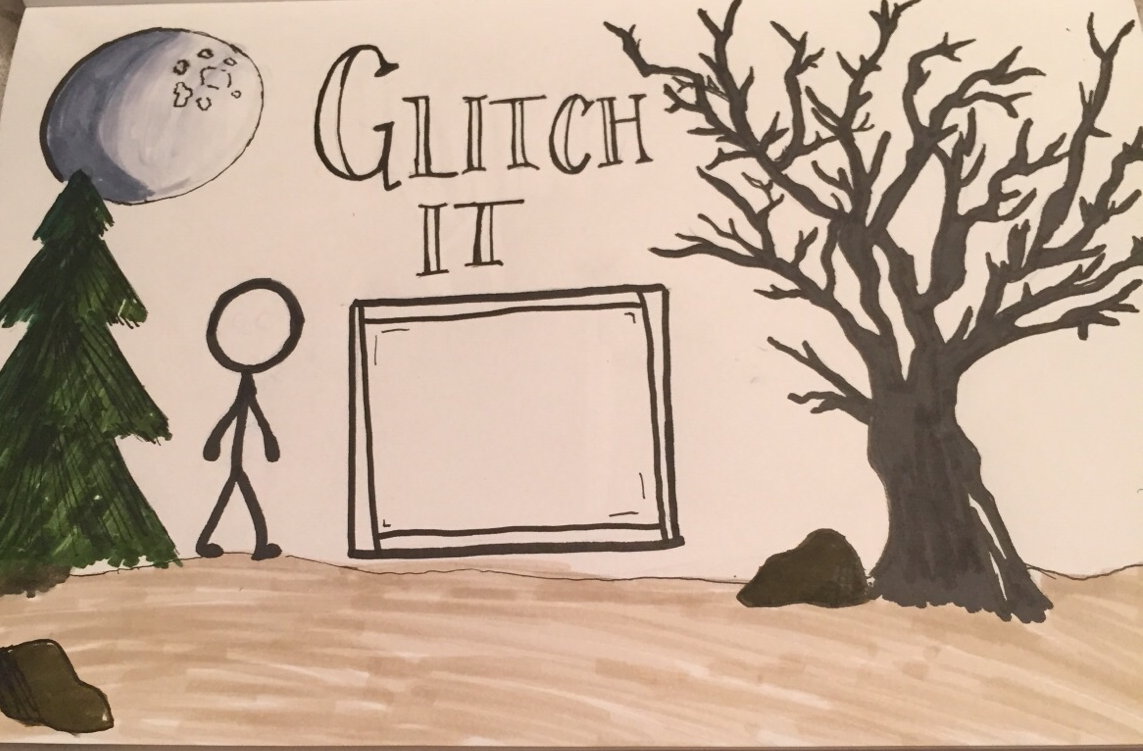 GLITCH
IT